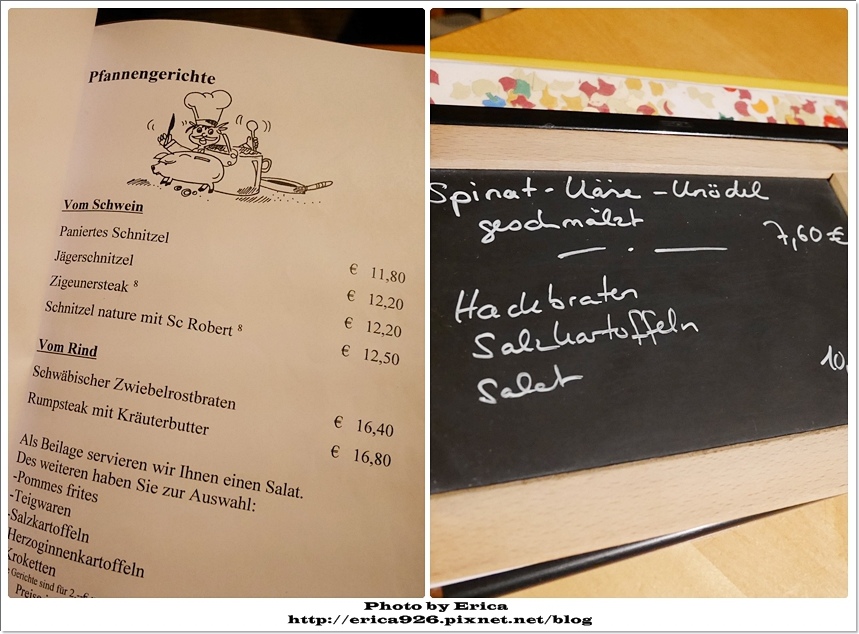 Pfannengerichte
Vom Schwein
Paniertes Schnitzel € 11,80
Jägerschnitzel € 12,20
Zigeunersteak 8 € 12,20
Schnitzel nature mit Sc Robert 8 € 12,50
Vom Rind
Schwäbischer Zwiebelrostbraten € 16,40
Rumpsteak mit Kräuterbutter € 16,80
Als Beilage servieren wir Ihnen einen Salat.
Des weiteren haben Sie zur Auswahl:
-Pommes frites
-Teigwaren
-Salzkartoffeln
Herzoginnenkartoffeln
Kroketten
Gerichte sind für 2.--€
Preise
Spinat-Käse-Knödel
geschmälzt 7,60€
Hackbraten
Salzkartoffeln
Salat 10,
Photo by Erica
http://erica926.pixnet.net/blog